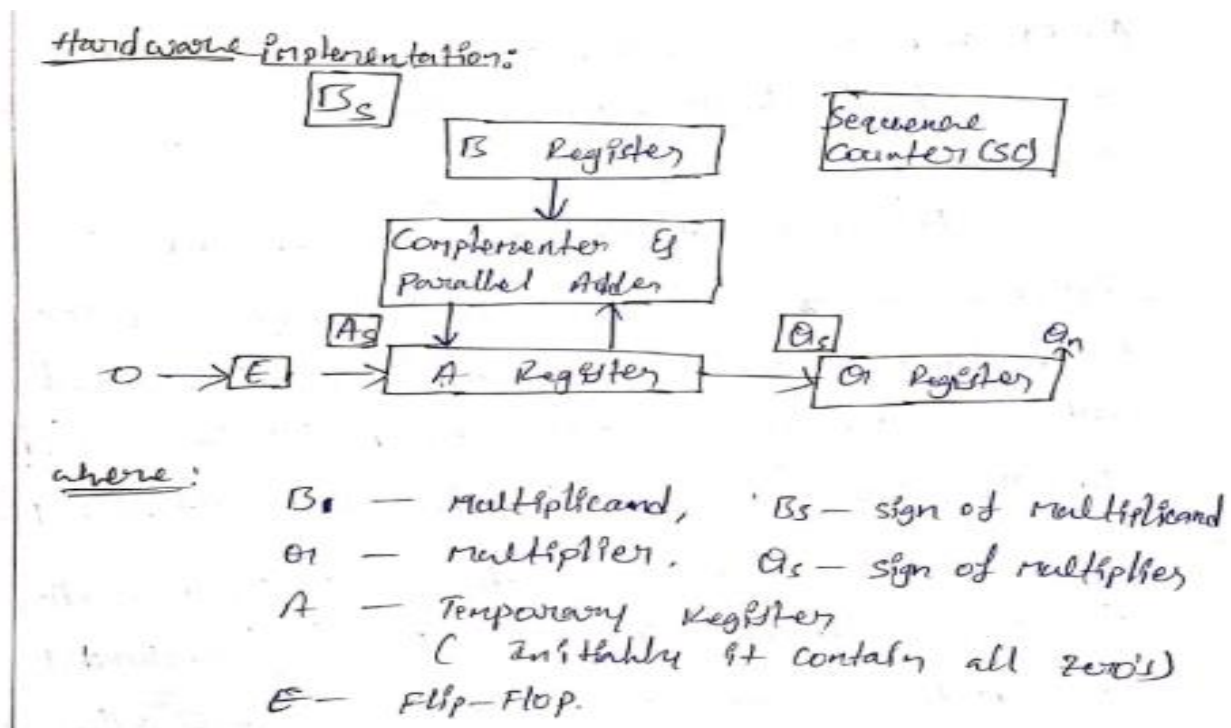 Hardware implementation:
Bs
B Register
Sequence
Counter (SC)
Complementer &
Parallel Adder
As
Qs
Qn
0 → E → A Register → Q Register
where:
B — Multiplicand, Bs — sign of Multiplicand
Q — Multiplier. Qs — sign of Multiplier
A — Temporary Register
( Initially it contain all zero's)
E — Flip-Flop.